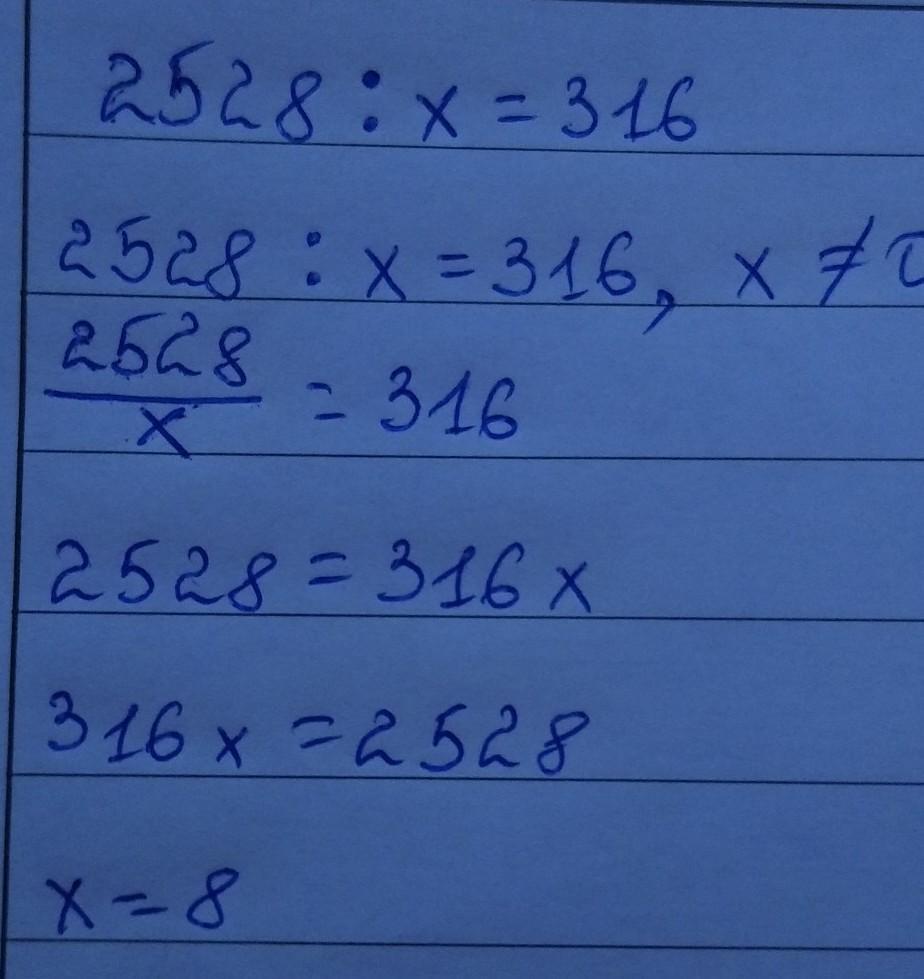 2528 : x = 316
2528 : x = 316, x ≠
2528
x
= 316
2528 = 316 x
316 x = 2528
x = 8